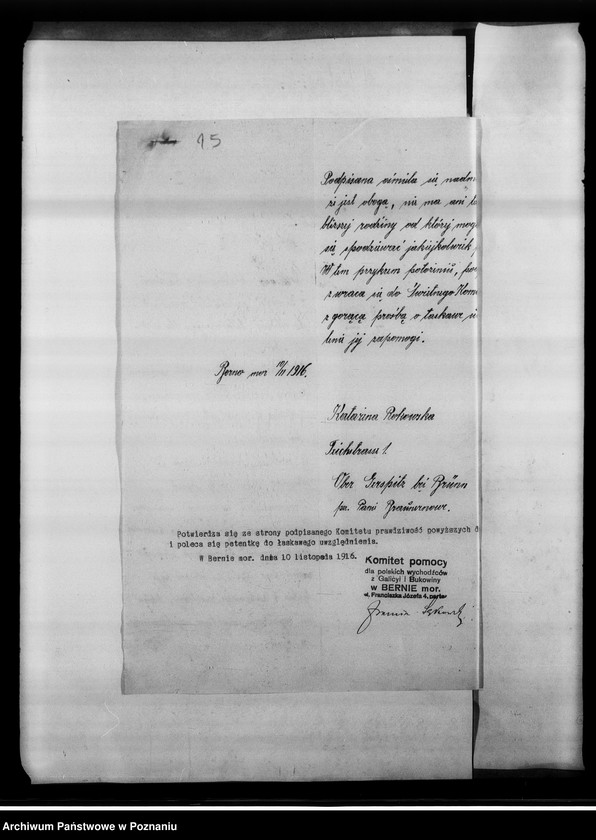 15
Podpisana ośmiela się nadm
że jest ubogą, nie ma ani
bliższej rodziny od której mog
się spodziewać jakiejkolwiek
W tem przykrem położeniu,
zwraca się do Świetnego Kom
z gorącą prośbą o łaskawe
lenie jej zapomogi.
Berno mor 10/11 1916.
Katarzina Rotowska
1.
Ober Gerspitz bei Brünn
pa. Pani
Potwierdza się ze strony podpisanego Komitetu prawdziwość powyższych d
i poleca się petentkę do łaskawego uwzględnienia.
W Bernie mor. dnia 10 listopada 1916.
Komitet pomocy
dla polskich wychodźców
z Galicyi i Bukowiny
w BERNIE mor.
ul. Franciszka Józefa 4. parter
Archiwum Państwowe w Poznaniu